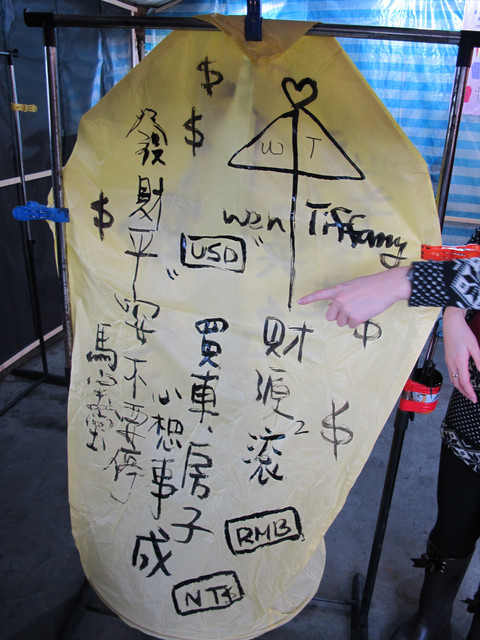 $
$
$
W T
wen Tiffany
USD
$
財源滾2
$
買車、房子
心想事成
發財平安不要停
RMB
NT$